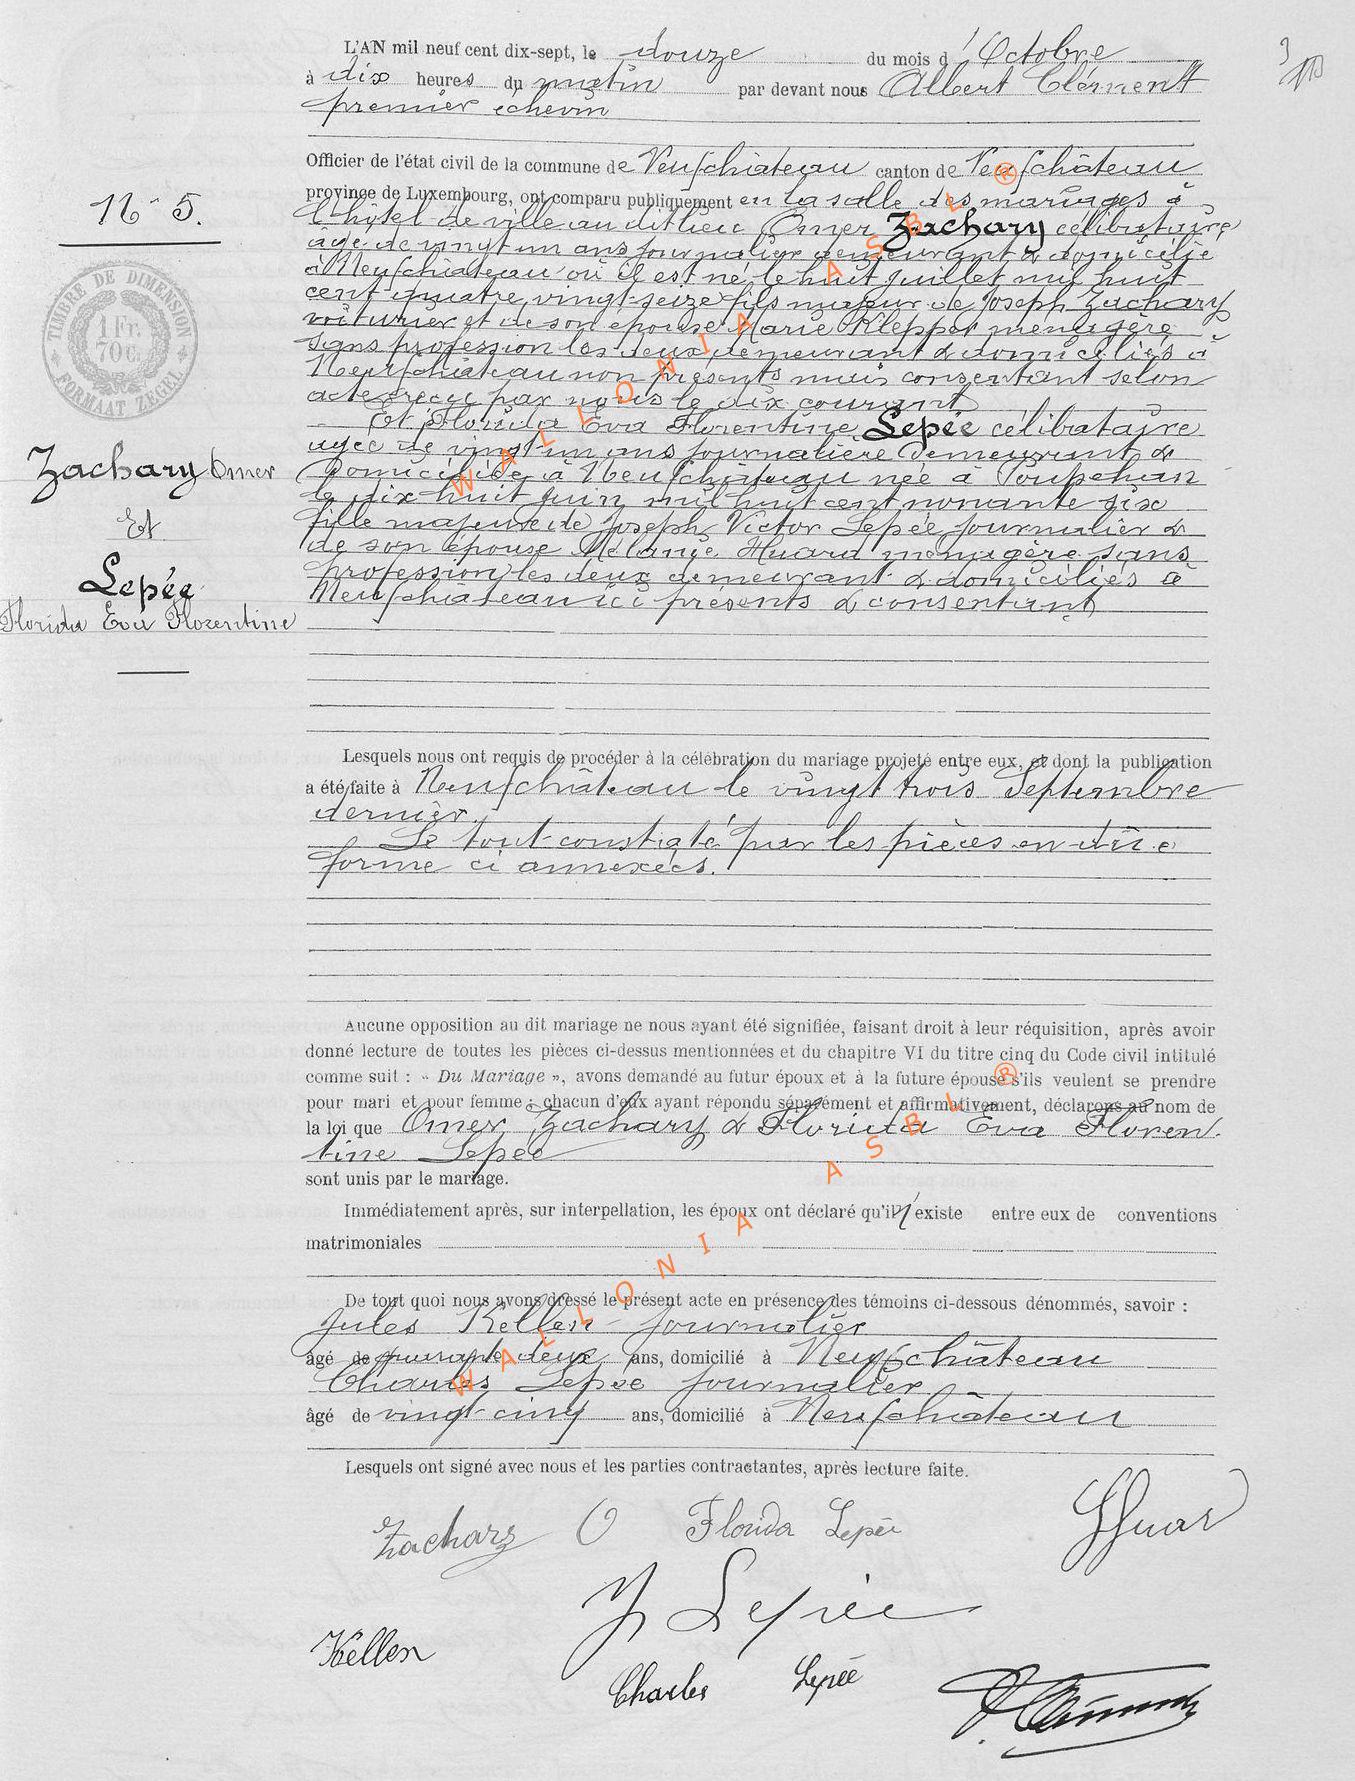 L'AN mil neuf cent dix-sept, le douze du mois d'Octobre
à dix heures du matin par devant nous Albert Clément
premier échevin
Officier de l'état civil de la commune de Neufchâteau canton de Neufchâteau
province de Luxembourg, ont comparu publiquement en la salle des mariages à
l'hôtel de ville au dit lieu Omer Zachary célibataire
âgé de vingt un ans journalier demeurant & domicilié
à Neufchâteau où il est né le huit juillet mil huit
cent quatre vingt-seize fils majeur de Joseph Zachary
voiturier et de son épouse Marie Kleppet ménagère
sans profession les deux demeurant & domiciliés à
Neufchâteau non présents mais consentant selon
acte reçu par nous le dix courant
Et Florida Eva Florentine Lepée célibataire
agée de vingt un ans journalière demeurant &
domiciliée à Neufchâteau née à Poupehan
le dix huit juin mil huit cent nonante six
fille majeure de Joseph Victor Lepée journalier &
de son épouse Mélanie Huard ménagère sans
profession les deux demeurant & domiciliés à
Neufchâteau ici présents & consentant
N° 5.
TIMBRE DE DIMENSION
1 Fr.
70 c.
FORMAAT ZEGEL
Zachary Omer
Et
Lepée
Florida Eva Florentine
Lesquels nous ont requis de procéder à la célébration du mariage projeté entre eux, et dont la publication
a été faite à Neufchâteau le vingt trois Septembre
dernier.
Le tout constaté par les pièces en due
forme ci annexées.
Aucune opposition au dit mariage ne nous ayant été signifiée, faisant droit à leur réquisition, après avoir
donné lecture de toutes les pièces ci-dessus mentionnées et du chapitre VI du titre cinq du Code civil intitulé
comme suit : « Du Mariage », avons demandé au futur époux et à la future épouse s'ils veulent se prendre
pour mari et pour femme ; chacun d'eux ayant répondu séparément et affirmativement, déclarons au nom de
la loi que Omer Zachary & Florida Eva Floren-
tine Lepée
sont unis par le mariage.
Immédiatement après, sur interpellation, les époux ont déclaré qu'il n'existe entre eux de conventions
matrimoniales
De tout quoi nous avons dressé le présent acte en présence des témoins ci-dessous dénommés, savoir :
Jules Kellen journalier
âgé de quarante deux ans, domicilié à Neufchâteau
Charles Lepée journalier
âgé de vingt-cinq ans, domicilié à Neufchâteau
Lesquels ont signé avec nous et les parties contractantes, après lecture faite.
Zachary O Florida Lepée Huard
J Lepée
Kellen
Charles Lepée
A. Clément
WALLONIA ASBL ®
WALLONIA ASBL ®